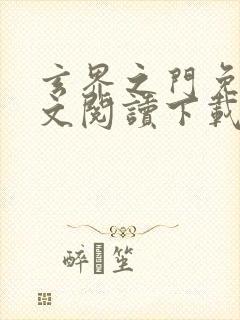 玄界之門免
文閱讀下載
醉 笙